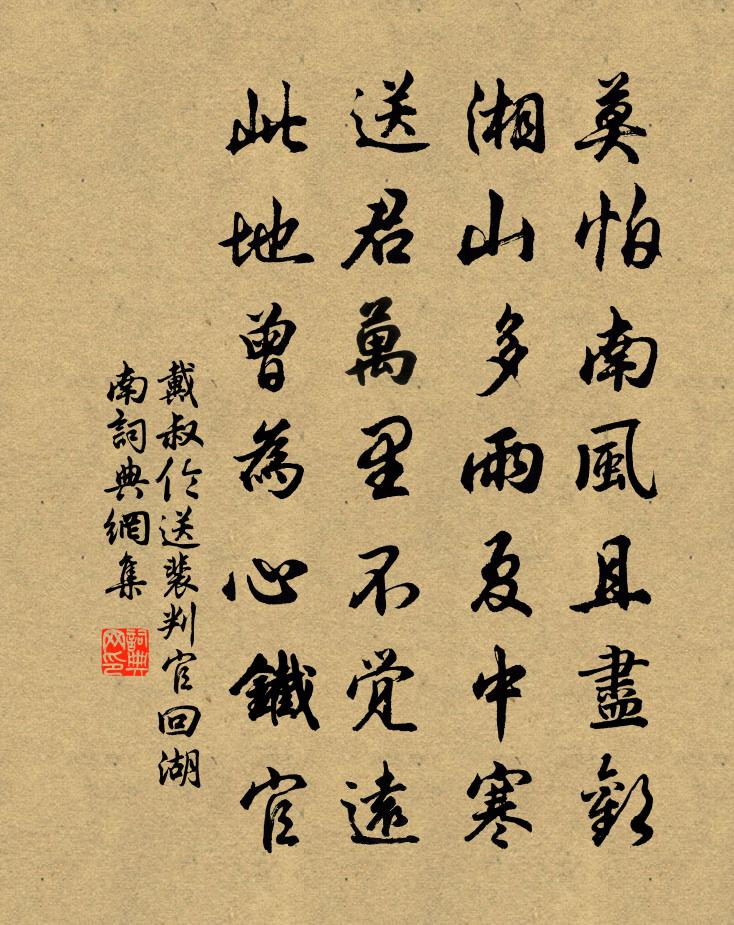 莫怕南風且盡歡
湘山多雨夏中寒
送君萬里不覺遠
此地曾為心鐵官
戴叔倫送裴判官回湖
南詞典網集
詞典
网印